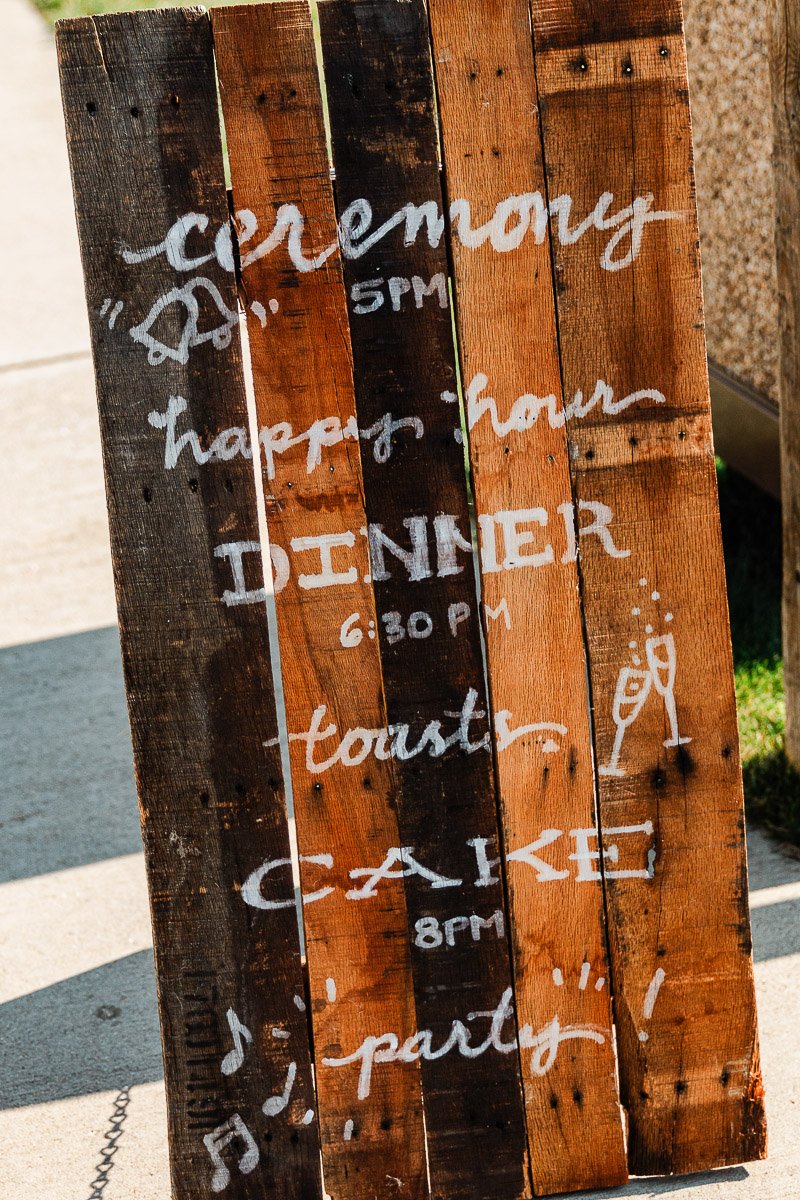 ceremony
5PM
happy hour
DINNER
6:30 PM
toasts
CAKE
8PM
party!